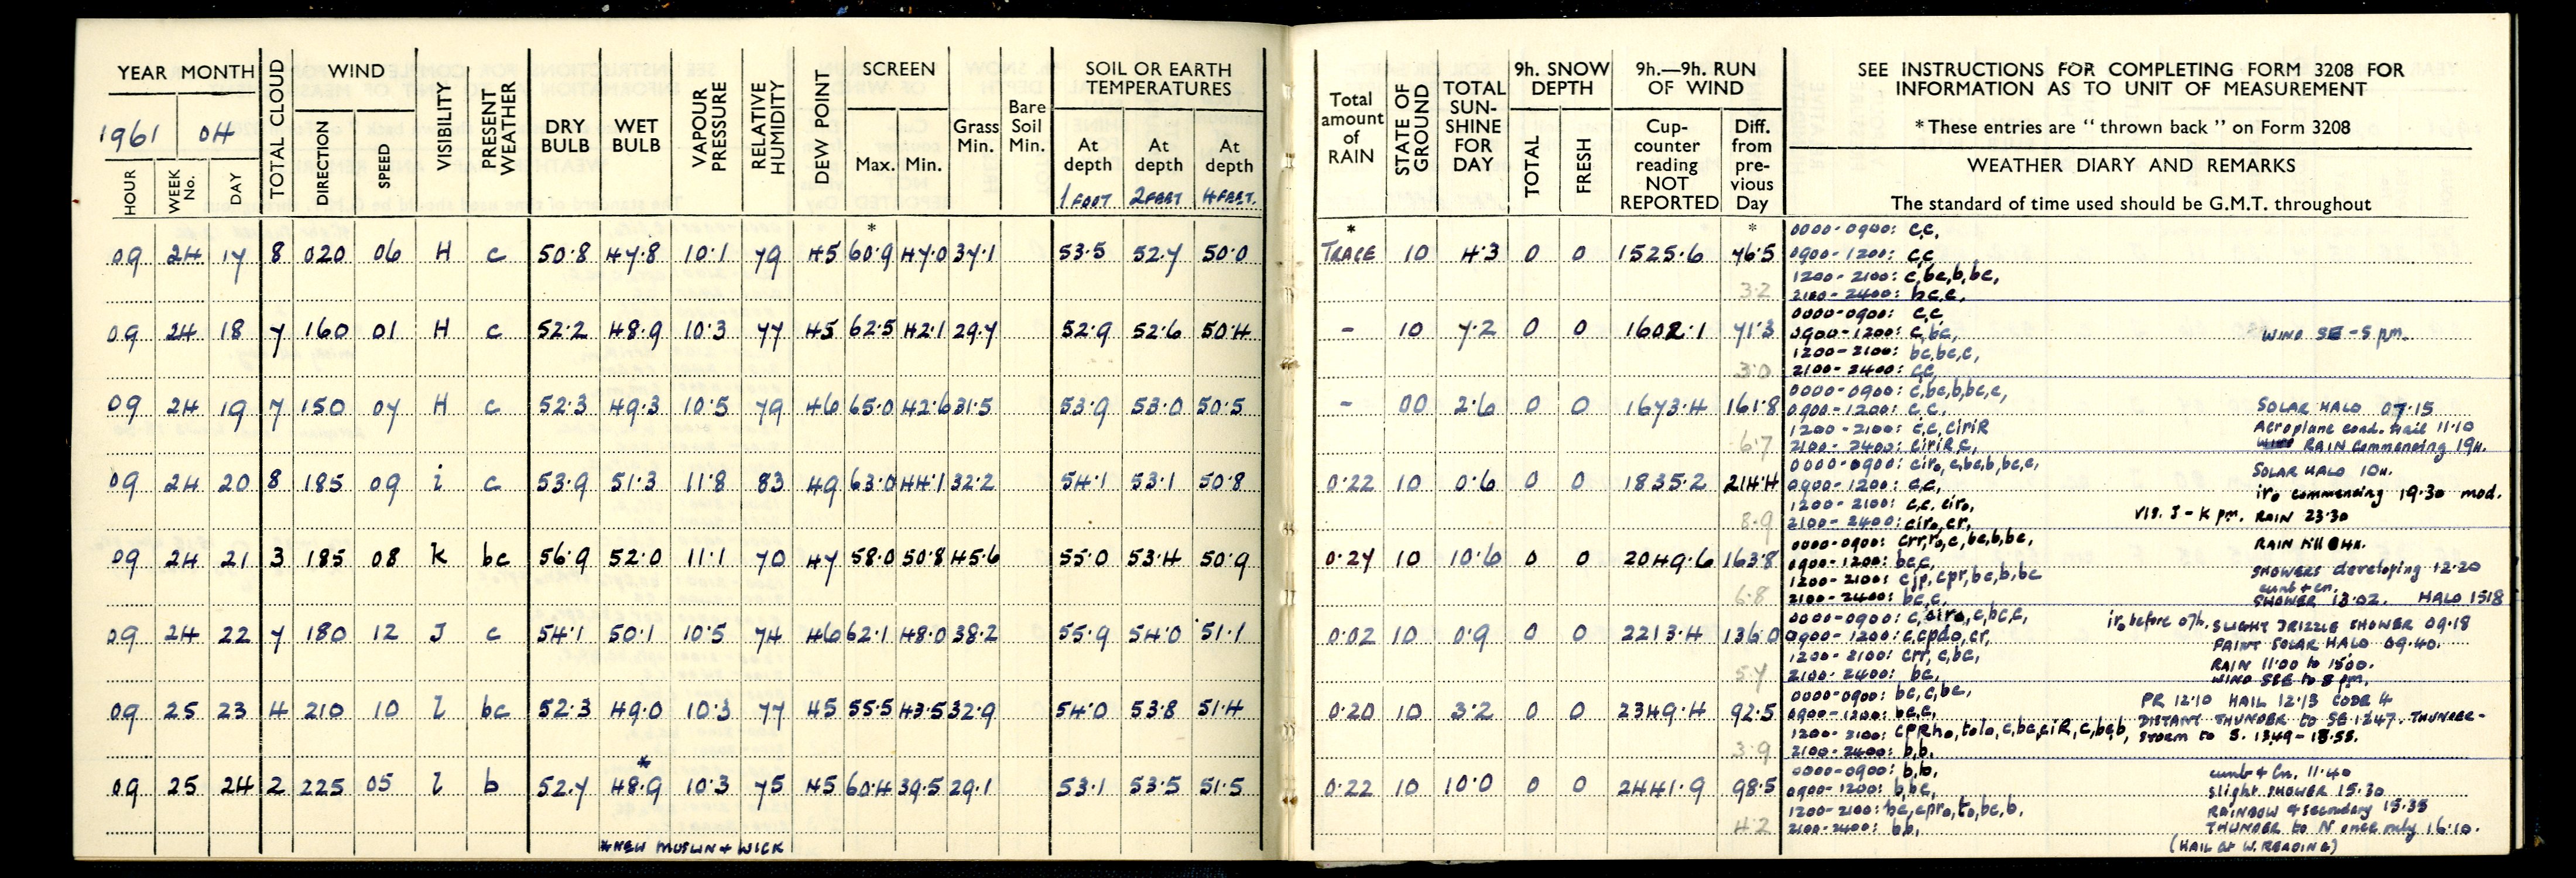 YEAR MONTH TOTAL CLOUD WIND VISIBILITY PRESENT WEATHER DRY BULB WET BULB VAPOUR PRESSURE RELATIVE HUMIDITY DEW POINT SCREEN Grass Min. Bare Soil Min. SOIL OR EARTH TEMPERATURES
1961 04 DIRECTION SPEED Max. Min. At depth At depth At depth
HOUR WEEK No. DAY 1 FOOT 2 FEET 4 FEET.
*
09 24 17 8 020 06 H c 50.8 47.8 10.1 79 45 60.9 47.0 37.1 53.5 52.7 50.0
09 24 18 7 160 01 H c 52.2 48.9 10.3 77 45 62.5 42.1 29.7 52.9 52.6 50.4
09 24 19 7 150 07 H c 52.3 49.3 10.5 79 46 65.0 42.6 31.5 53.9 53.0 50.5
09 24 20 8 185 09 i c 53.9 51.3 11.8 83 49 63.0 44.1 32.2 54.1 53.1 50.8
09 24 21 3 185 08 k bc 56.9 52.0 11.1 70 47 58.0 50.8 45.6 55.0 53.4 50.9
09 24 22 7 180 12 J c 54.1 50.1 10.5 74 46 62.1 48.0 38.2 55.9 54.0 51.1
09 25 23 4 210 10 l bc 52.3 49.0 10.3 77 45 55.5 43.5 32.9 54.0 53.8 51.4
*
09 25 24 2 225 05 l b 52.7 48.9 10.3 75 45 60.4 39.5 29.1 53.1 53.5 51.5
*NEW MUSLIN + WICK
Total amount of RAIN STATE OF GROUND TOTAL SUN-SHINE FOR DAY 9h. SNOW DEPTH 9h.—9h. RUN OF WIND SEE INSTRUCTIONS FOR COMPLETING FORM 3208 FOR
INFORMATION AS TO UNIT OF MEASUREMENT
*These entries are "thrown back" on Form 3208
TOTAL FRESH Cup-counter reading NOT REPORTED Diff. from pre-vious Day WEATHER DIARY AND REMARKS
The standard of time used should be G.M.T. throughout
* * 0000-0900: c,c,
TRACE 10 4.3 0 0 1525.6 76.5 0900-1200: c,c
1200-2100: c,bc,b,bc,
3.2 2100-2400: bc,c,
0000-0900: c,c,
- 10 7.2 0 0 1602.1 71.3 0900-1200: c,bc, WIND SE-S pm.
1200-2100: bc,bc,c,
3.0 2100-2400: c,c,
0000-0900: c,bc,b,bc,c,
- 00 2.6 0 0 1673.4 161.8 0900-1200: c,c, SOLAR HALO 07.15
1200-2100: c,c,ciriR Aeroplane cond. trail 11.10
6.7 2100-2400: ciriR,c, RAIN commencing 19H.
0000-0900: ciro,c,bc,b,bc,c, SOLAR HALO 10H.
0.22 10 0.6 0 0 1835.2 214.4 0900-1200: c,c, iro commencing 19.30 mod.
1200-2100: c,c,ciro, VIS. J-K pm. RAIN 23.30
8.9 2100-2400: ciro,cr,
0000-0900: crr,ro,c,bc,b,bc, RAIN till 04H.
0.27 10 10.6 0 0 2049.6 163.8 0900-1200: bc,c, SHOWERS developing 12.20
1200-2100: cjp,cpr,bc,b,bc cumb + cn.
6.8 2100-2400: bc,c, SHOWER 13.02. HALO 1518
0000-0900: c,ciro,c,bc,c, iro before 07h. SLIGHT DRIZZLE SHOWER 09.18
0.02 10 0.9 0 0 2213.4 136.0 0900-1200: c,cpdo,cr, FAINT SOLAR HALO 09.40.
1200-2100: crr,c,bc, RAIN 11.00 to 1500.
5.7 2100-2400: bc, WIND SSE to 8 pm.
0000-0900: bc,c,bc, PR 12.10 HAIL 12.13 CODE 4
0.20 10 3.2 0 0 2349.4 92.5 0900-1200: bc,c, DISTANT THUNDER to SE 1247. THUNDER-
1200-2100: CPRho,tolo,c,bc,ciR,c,bc,b, STORM to S. 1349-
3.9 2100-2400: b,b,
0000-0900: b,b, cumb + Cn. 11.40
0.22 10 10.0 0 0 2441.9 98.5 0900-1200: b,bc, slight SHOWER 15.30
1200-2100: bc,cpro,to,bc,b. RAINBOW & secondary 15.35
4.2 2100-2400: bb, THUNDER to N once only 16.10.
(HAIL at W. READING)